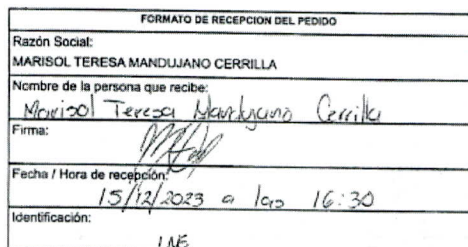 FORMATO DE RECEPCION DEL PEDIDO
Razón Social:
MARISOL TERESA MANDUJANO CERRILLA
Nombre de la persona que recibe:
Marisol Teresa Mandujano Cerrilla
Firma:
Fecha / Hora de recepción:
15/12/2023 a las 16:30
Identificación:
INE